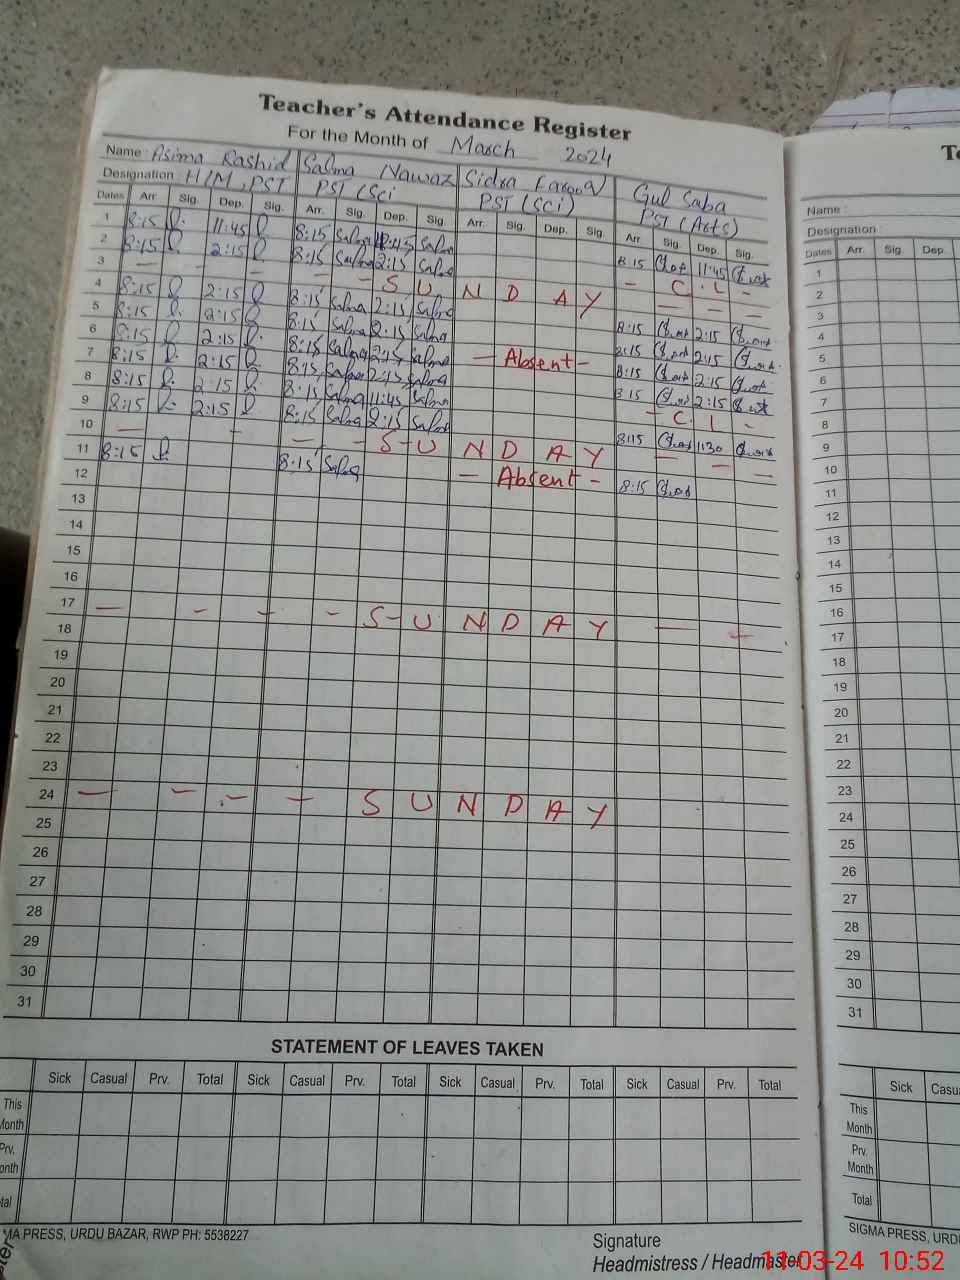 Teacher's Attendance Register
For the Month of March 2024
Name: Asima Rashid Salma Nawaz Sidra Farooq Gul Saba
Designation: H/M, PST PST (Sci PST (Sci) PST (Arts)
Dates Arr. Sig. Dep. Sig. Arr. Sig. Dep. Sig. Arr. Sig. Dep. Sig. Arr. Sig. Dep. Sig.
1 8:15 11:45 8:15 Salma Salma 8:15 11:45
2 8:15 2:15 8:15 Salma 2:15 Salma - C.L -
3 - - - - - S U N D A Y - - -
4 8:15 2:15 8:15 Salma 2:15 Salma 8:15 2:15
5 8:15 2:15 8:15 Salma 2:15 Salma 8:15 2:15
6 8:15 2:15 8:15 Salma 2:15 Salma - Absent - 8:15 2:15
7 8:15 2:15 8:15 Salma 2:15 Salma 8:15 2:15
8 8:15 2:15 8:15 Salma 11:45 Salma - C L -
9 8:15 2:15 8:15 Salma 2:15 Salma 8:15 1:30
10 - - - - S-U N D A Y - - -
11 8:15 8:15 Salma - Absent - 8:15
12
13
14
15
16
17 - - - - S-U N D A Y - -
18
19
20
21
22
23
24 - - - - S U N D A Y
25
26
27
28
29
30
31
STATEMENT OF LEAVES TAKEN
Sick Casual Prv. Total Sick Casual Prv. Total Sick Casual Prv. Total Sick Casual Prv. Total
This Month
Prv. onth
tal
MA PRESS, URDU BAZAR, RWP PH: 5538227
Signature
Headmistress / Headmaster
Te
Name:
Designation:
Dates Arr. Sig. Dep.
1
2
3
4
5
6
7
8
9
10
11
12
13
14
15
16
17
18
19
20
21
22
23
24
25
26
27
28
29
30
31
Sick Casu
This Month
Prv. Month
Total
SIGMA PRESS, URD
11-03-24 10:52